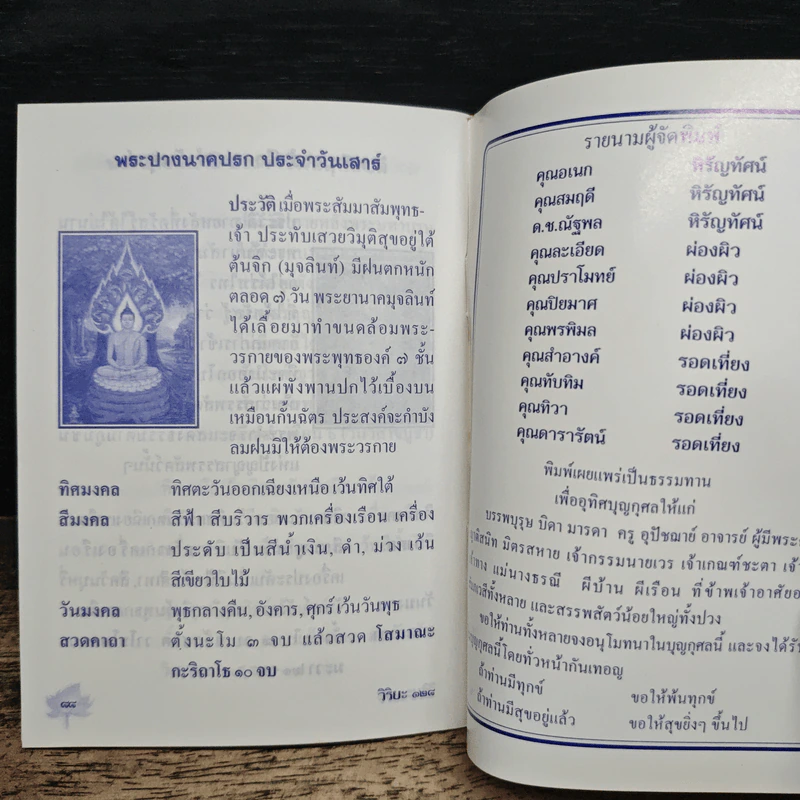 พระปางนาคปรก ประจำวันเสาร์
ประวัติ เมื่อพระสัมมาสัมพุทธ-
เจ้า ประทับเสวยวิมุติสุขอยู่ใต้
ต้นจิก (มุจลินท์) มีฝนตกหนัก
ตลอด ๗ วัน พระยานาคมุจลินท์
ได้เลื้อยมาทำขนดล้อมพระ-
วรกายของพระพุทธองค์ ๗ ชั้น
แล้วแผ่พังพานปกไว้เบื้องบน
เหมือนกั้นฉัตร ประสงค์จะกำบัง
ลมฝนมิให้ต้องพระวรกาย
ทิศมงคล ทิศตะวันออกเฉียงเหนือ เว้นทิศใต้
สีมงคล สีฟ้า สีบริวาร พวกเครื่องเรือน เครื่อง
ประดับ เป็นสีน้ำเงิน, ดำ, ม่วง เว้น
สีเขียวใบไม้
วันมงคล พุธกลางคืน, อังคาร, ศุกร์ เว้นวันพุธ
สวดคาถา ตั้งนะโม ๓ จบ แล้วสวด โสมาณะ
กะริถาโธ ๑๐ จบ
๘๘ วิริยะ ๑๒๘
รายนามผู้จัดพิมพ์
คุณอเนก หิรัญทัศน์
คุณสมฤดี หิรัญทัศน์
ด.ช.ณัฐพล หิรัญทัศน์
คุณละเอียด ผ่องผิว
คุณปราโมทย์ ผ่องผิว
คุณปิยมาศ ผ่องผิว
คุณพรพิมล ผ่องผิว
คุณสำอางค์ รอดเที่ยง
คุณทับทิม รอดเที่ยง
คุณทิวา รอดเที่ยง
คุณดารารัตน์ รอดเที่ยง
พิมพ์เผยแพร่เป็นธรรมทาน
เพื่ออุทิศบุญกุศลให้แก่
บรรพบุรุษ บิดา มารดา ครู อุปัชฌาย์ อาจารย์ ผู้มีพระ
มิตรสหาย เจ้ากรรมนายเวร เจ้าเกณฑ์ชะตา
แม่นางธรณี ผีบ้าน ผีเรือน ที่ข้าพเจ้าอาศัย
ทั้งหลาย และสรรพสัตว์น้อยใหญ่ทั้งปวง
ขอให้ท่านทั้งหลายจงอนุโมทนาในบุญกุศลนี้ และจงได้รับ
โดยทั่วหน้ากันเทอญ
ถ้าท่านมีทุกข์ ขอให้พ้นทุกข์
ถ้าท่านมีสุขอยู่แล้ว ขอให้สุขยิ่งๆ ขึ้นไป